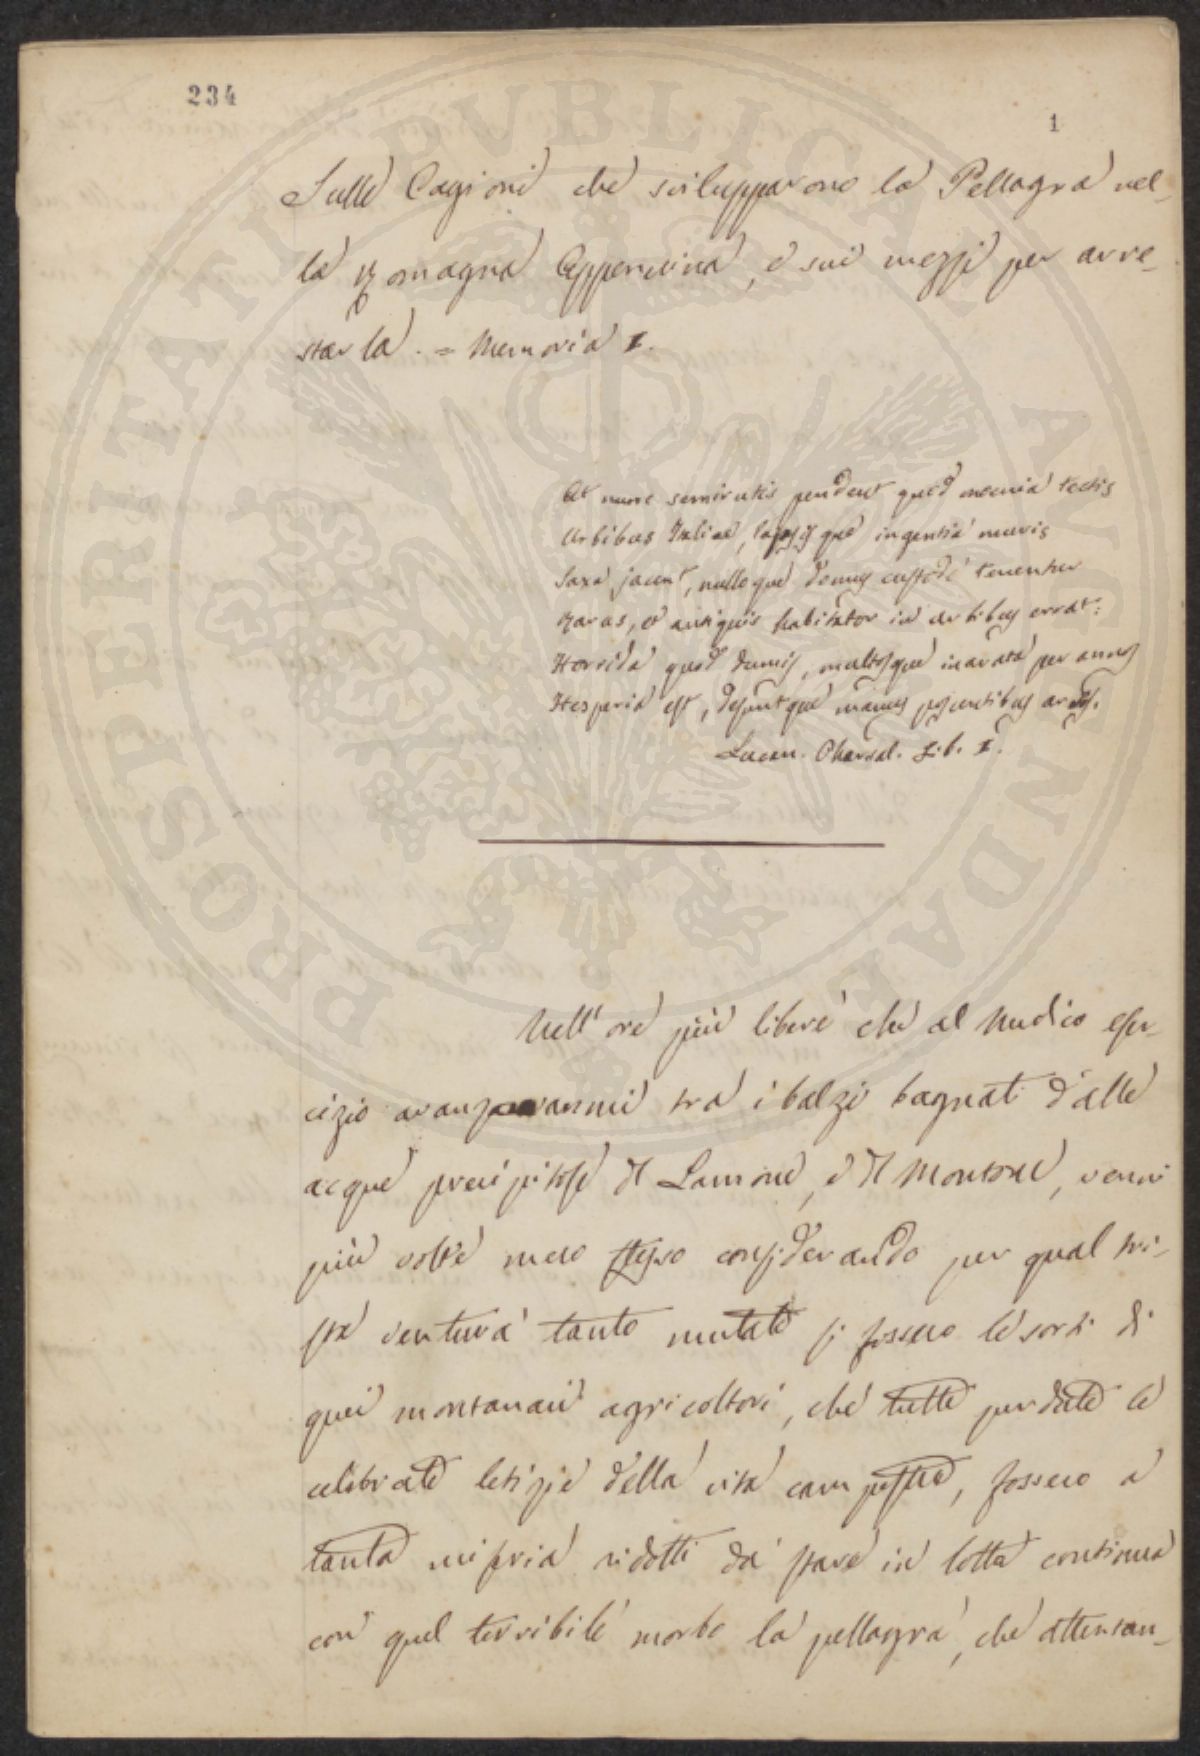 234
1
Sulle Cagioni che svilupparono la Pellagra nel-
la Romagna Appennina, e sui mezzi per arre-
starla. = Memoria I.
At nunc semirutis pendent quod moenia tectis
Urbibus Italiae, lapsisque ingentia muris
Saxa jacent, nulloque domus custode tenentur
Rarus, et antiquis habitator in urbibus errat:
Horrida quod dumis, multosque inarata per annos
Hesperia est, desuntque manus poscentibus arvis.
Lucan. Pharsal. Lib. I.
Nell' ore più libere che al Medico eser-
cizio avanzavanmi tra i balzi bagnati dalle
acque precipitose del Lamone, e del Montone, venni
più volte meco stesso considerando per qual tri-
sta ventura tanto mutate si fossero le sorti di
quei montanari agricoltori, che tutte perdute le
celebrate letizie della vita campestre, fossero a
tanta miseria ridotti da stare in lotta continua
con quel terribile morbo la pellagra, che attentan-
PROSPERITATI PVBLICAE AVGENDAE